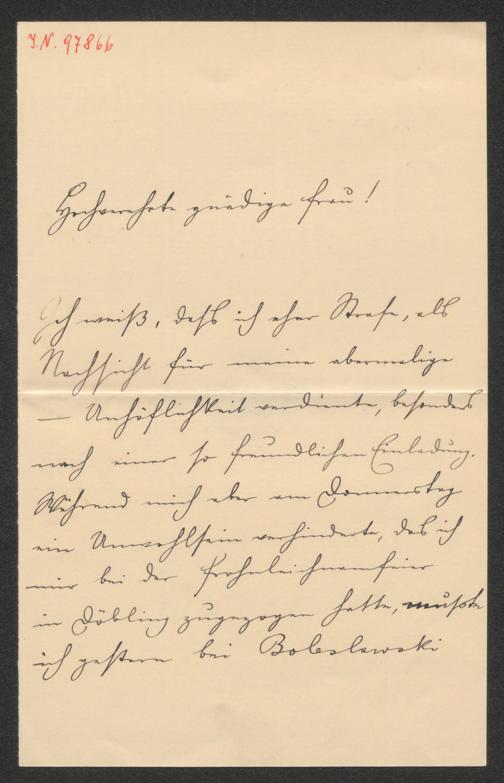 I.N. 97866
Hochverehrte gnädige Frau!
Ich weiß, dass ich eher Strafe, als
Nachsicht für meine abermalige
— Unhöflichkeit verdiente, besonders
nach einer so freundlichen Einladung.
Während mich aber am Donnerstag
ein Unwohlsein verhinderte, das ich
mir bei der Frohnleichnamsfeier
in Döbling zugezogen hatte, mußte
ich gestern bei Boleslawski